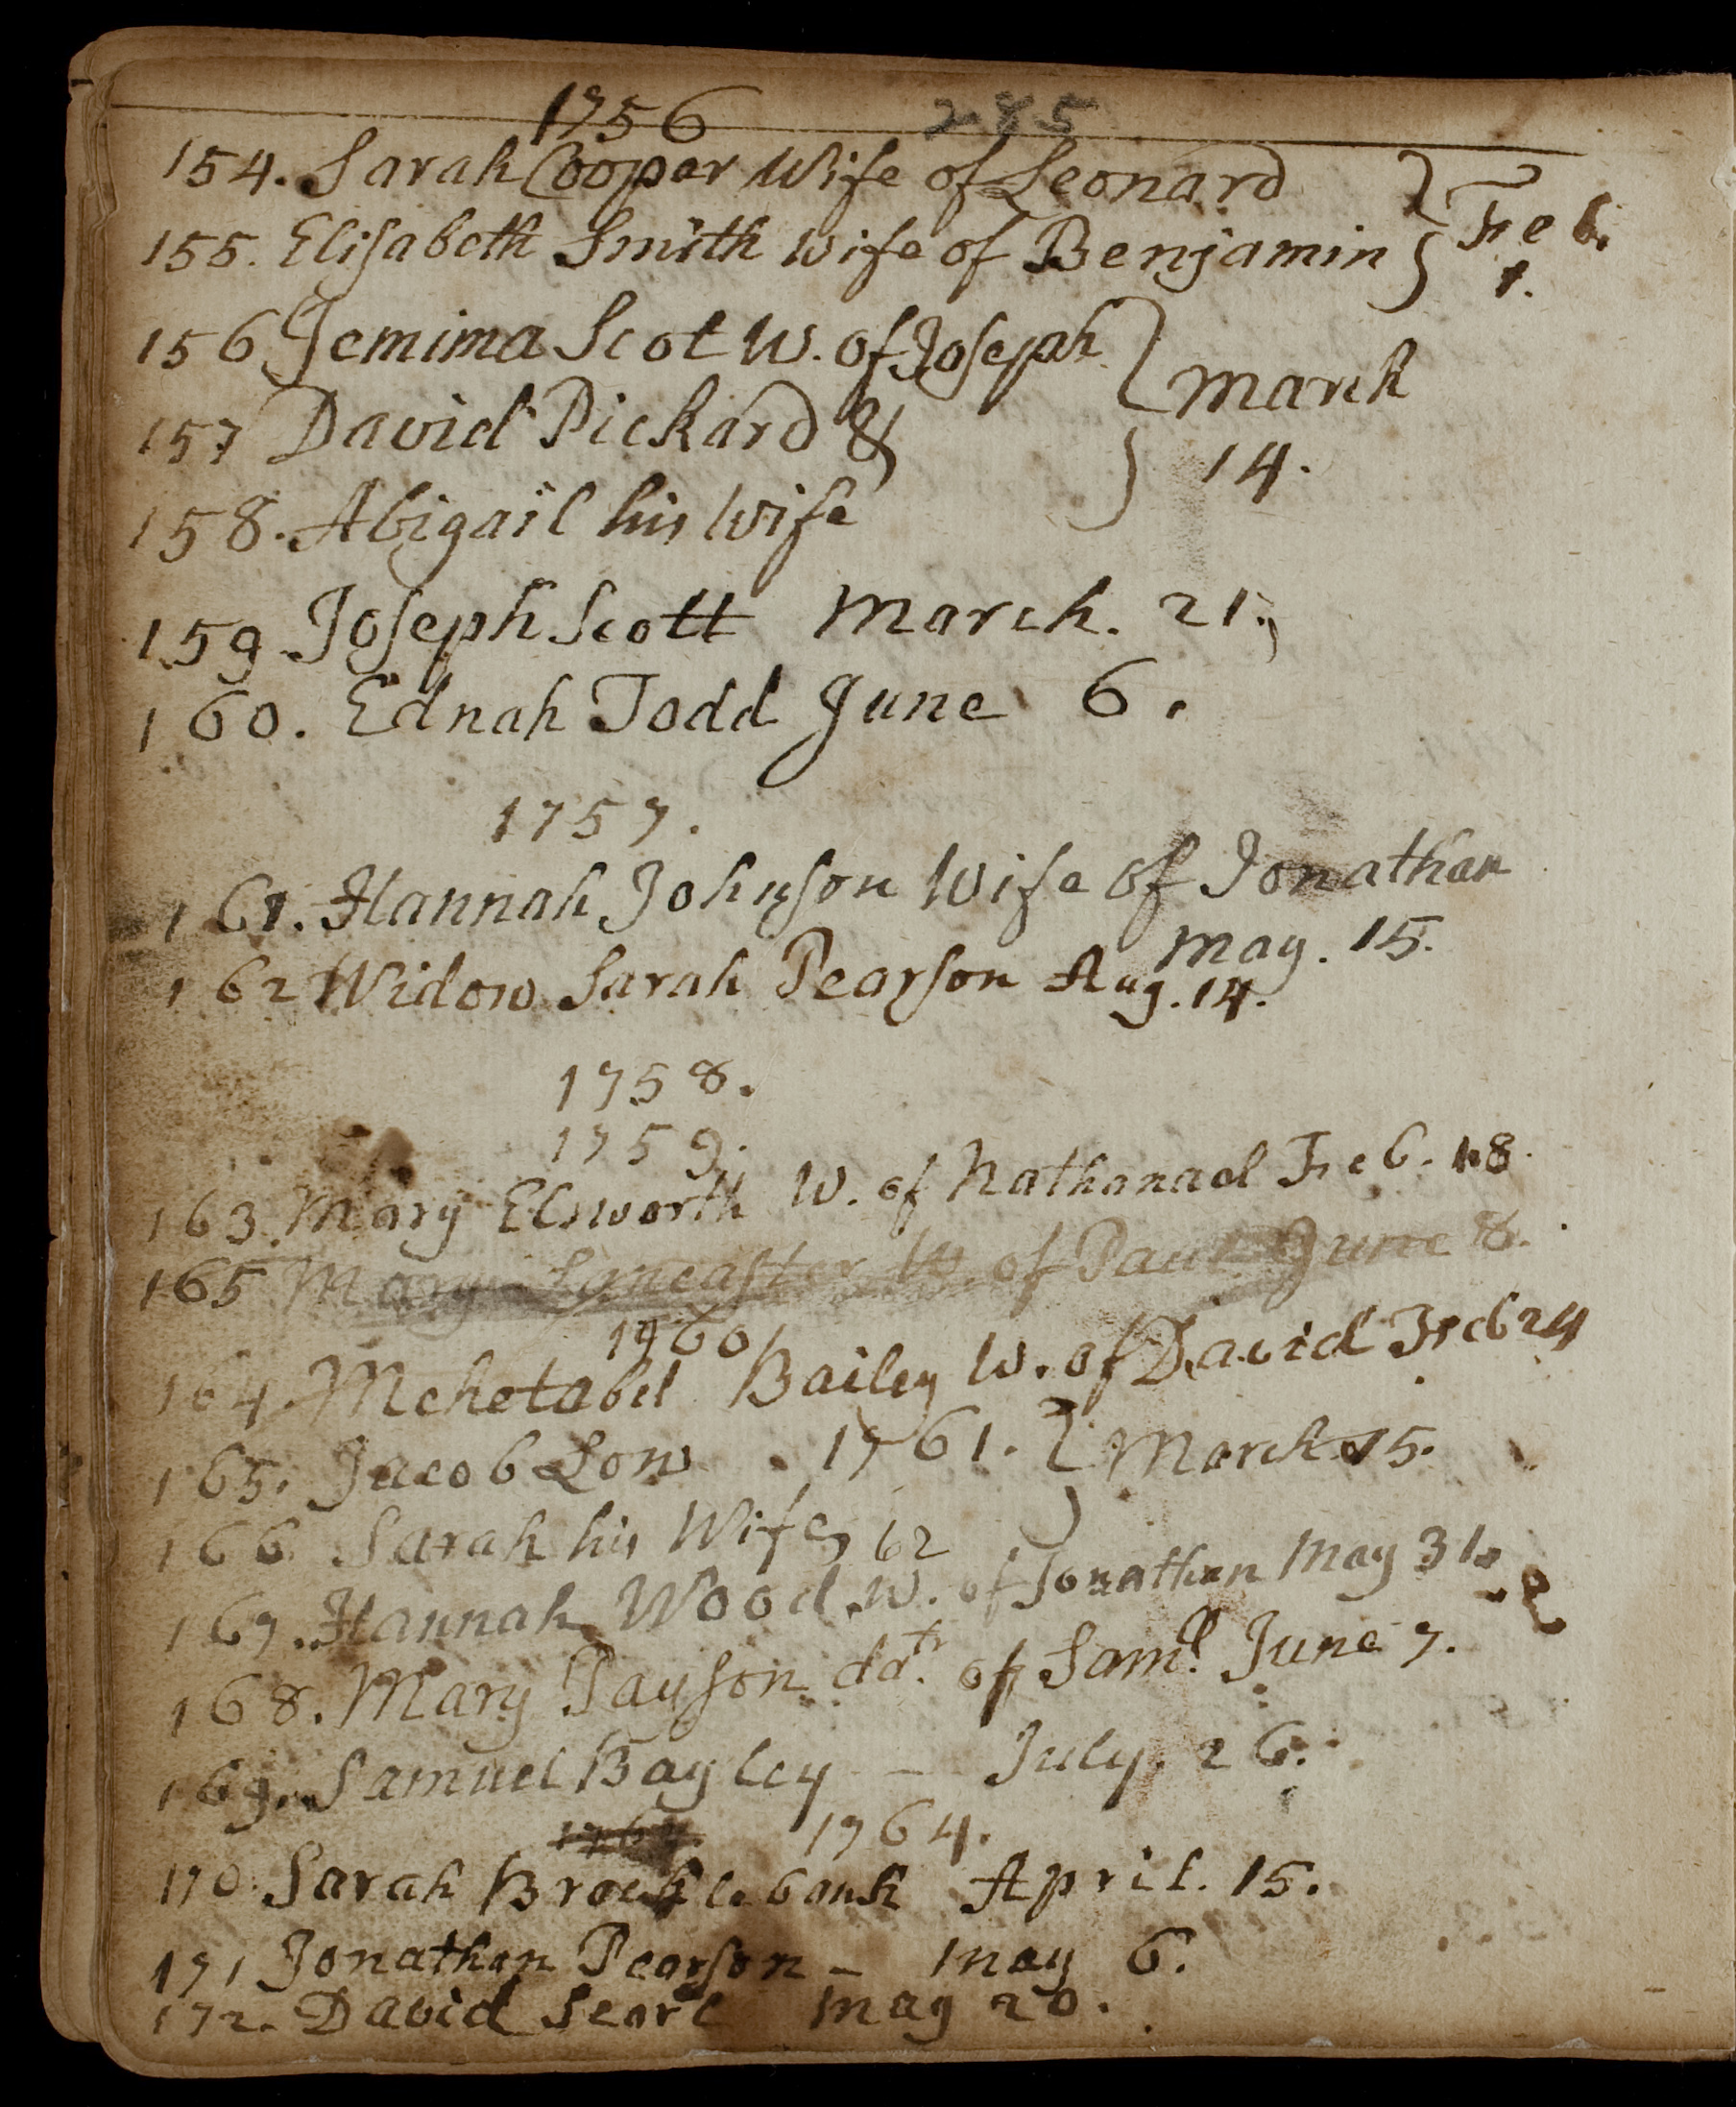 1756 285
154. Sarah Cooper Wife of Leonard } Feb.
155. Elisabeth Smith Wife of Benjamin } 1.
156 Jemima Scot W. of Joseph } March
157 David Pickard &
158. Abigail his Wife } 14.
159 Joseph Scott March. 21.
160. Ednah Todd June 6.
1757.
161. Hannah Johnson Wife of Jonathan
May. 15.
162 Widow Sarah Pearson Aug. 14.
1758.
1759.
163. Mary Elsworth W. of Nathanael Feb. 18.
165 Mary Lancaster W. of Paul June 8.
1760
164. Mehetabel Bailey W. of David Feb 24
165. Jacob Low . 1761. } March 15.
166 Sarah his Wife, 62
167. Hannah Wood W. of Jonathan May 31.
168. Mary Payson datr. of Saml. June 7.
169. Samuel Bayley – July. 26.
1764.
170. Sarah Brocklebank April. 15.
171 Jonathan Pearson – May 6.
172. David Searl May 20.